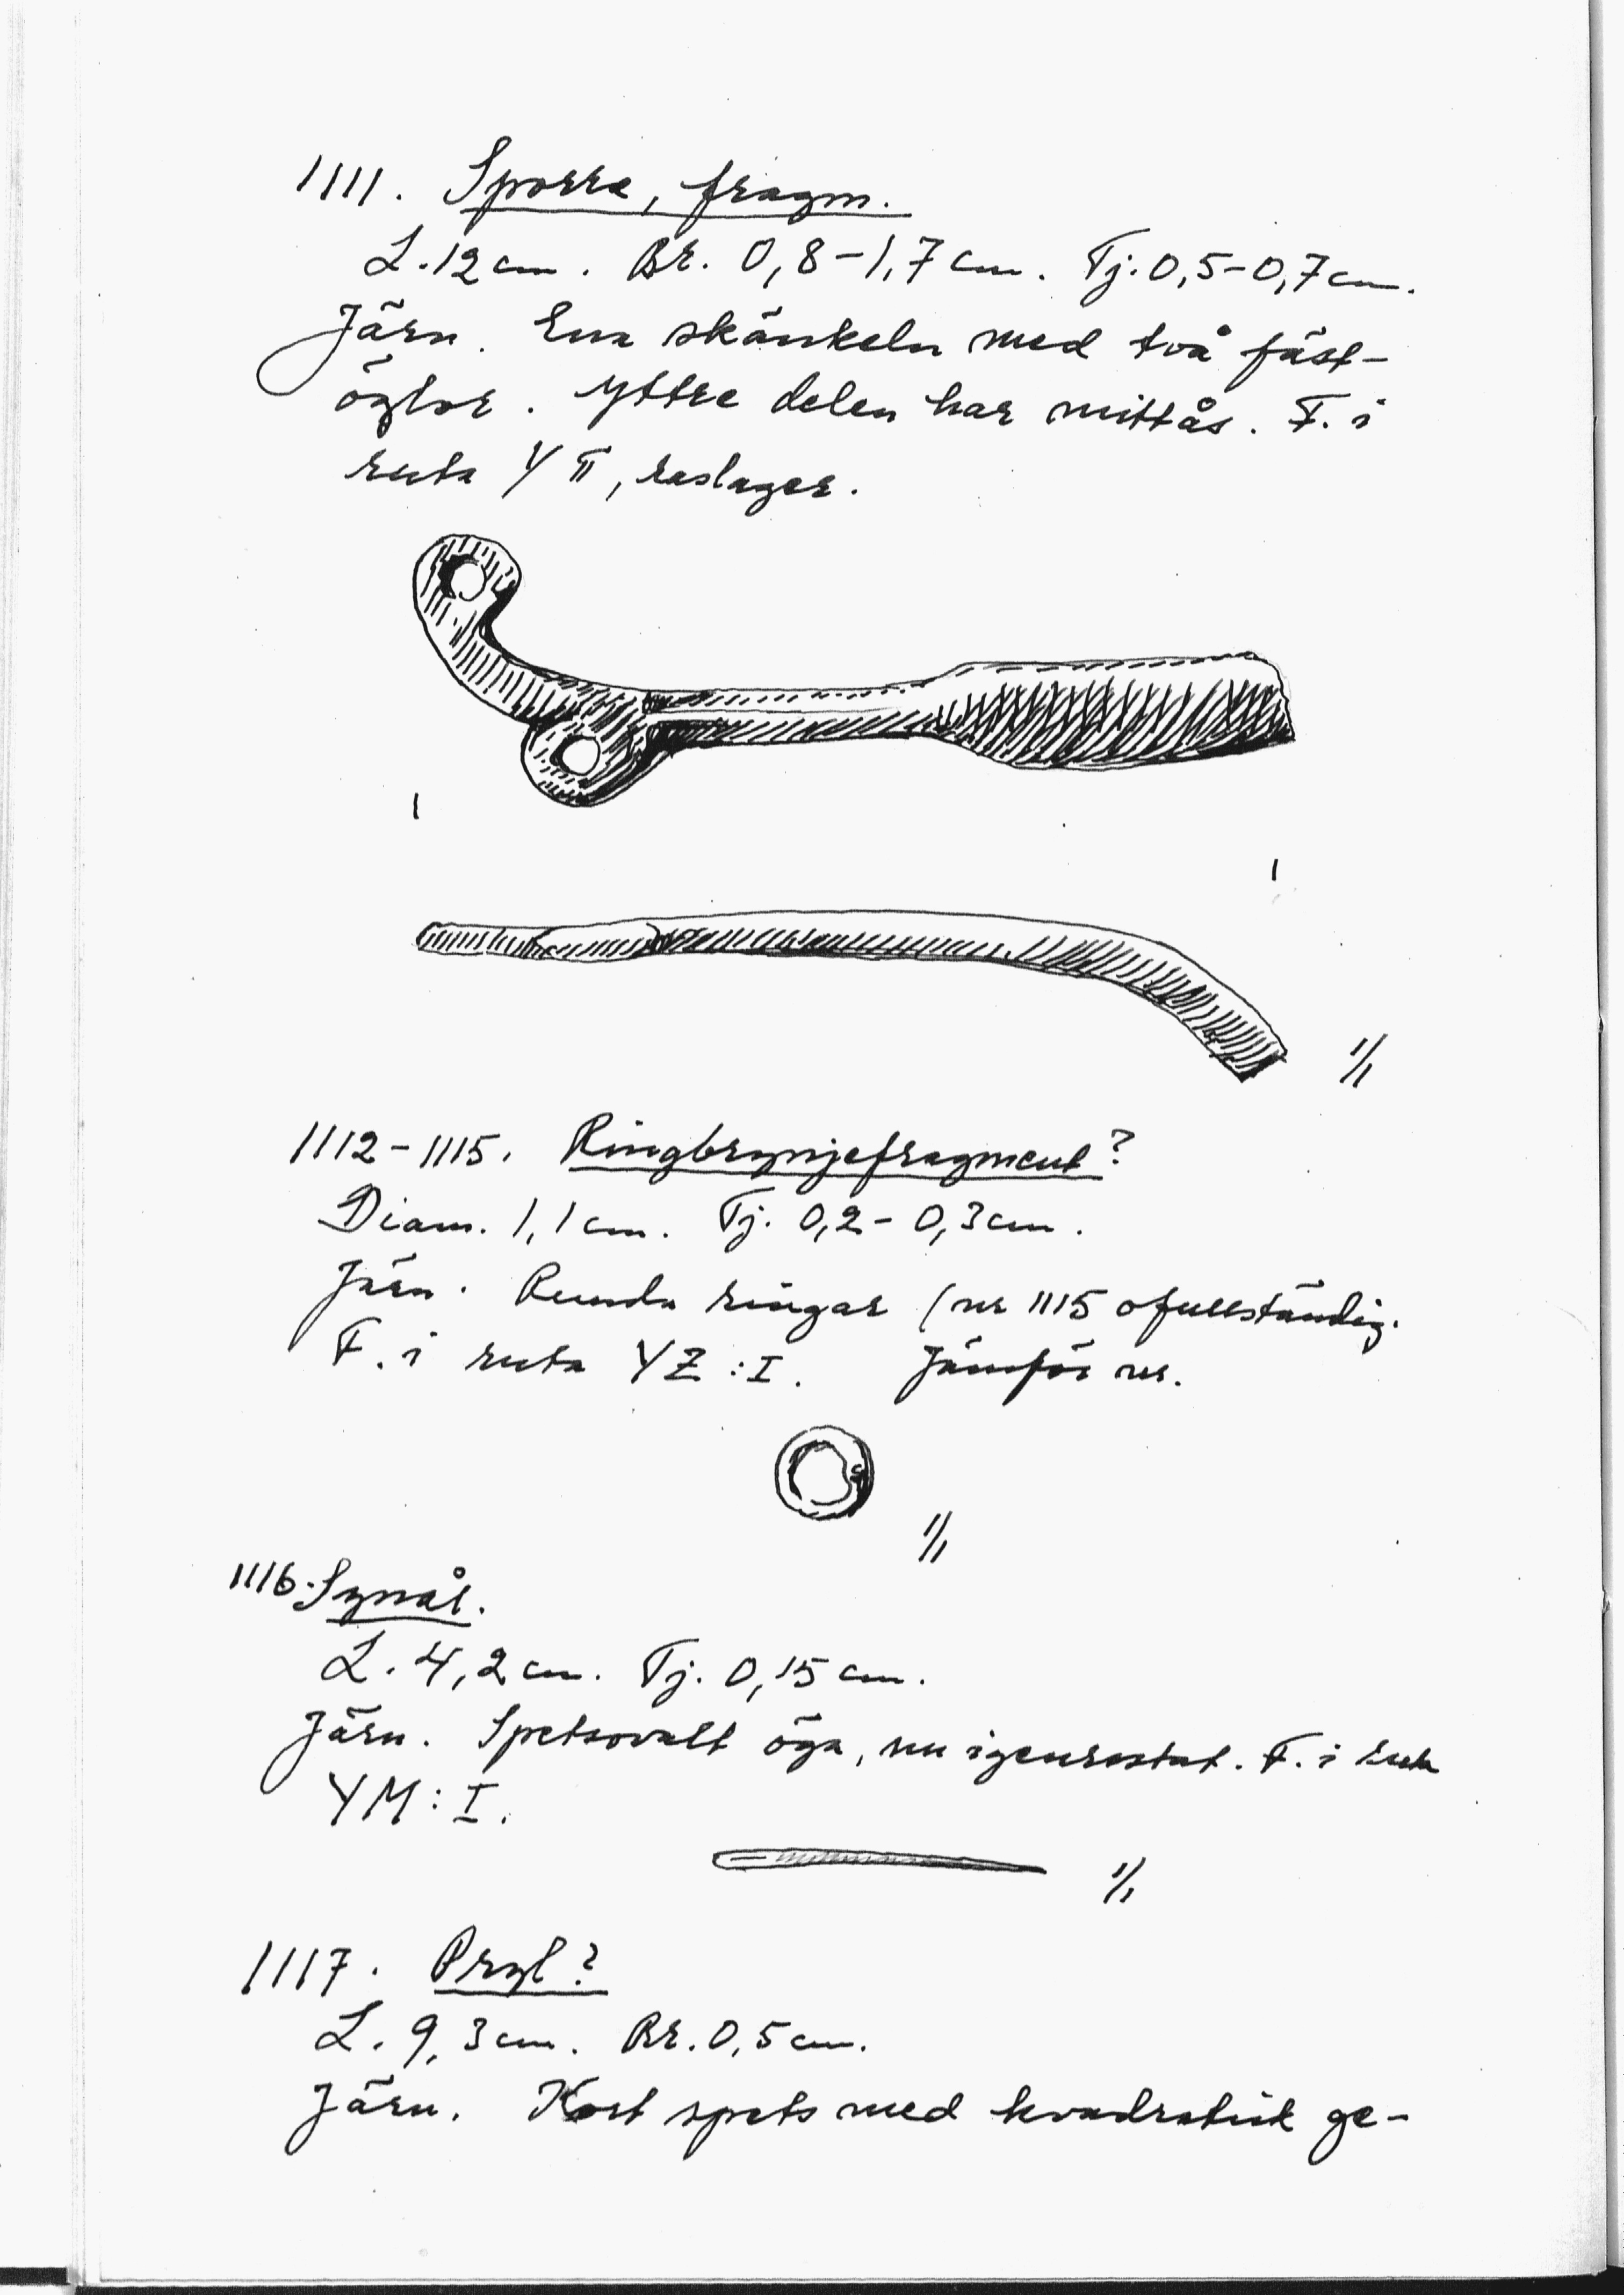 1111. Sporre, fragm.
L. 12 cm. Br. 0,8-1,7 cm. Tj. 0,5-0,7 cm.
Järn. Ena skänkeln med två fäst-
öglor. Yttre delen har mittås. F. i
ruta Y II, raslager.
1/1
1112-1115. Ringbrynjefragment?
Diam. 1,1 cm. Tj. 0,2-0,3 cm.
Järn. Runda ringar (nr 1115 ofullständig.
F. i ruta YZ:I. Jämför nr.
1/1
1116. Synål.
L. 4,2 cm. Tj. 0,15 cm.
Järn. Spetsovalt öga, nu igenrostat. F. i ruta
YM:I.
1/1
1117. Pryl?
L. 9,3 cm. Br. 0,5 cm.
Järn. Kort spets med kvadratisk ge-